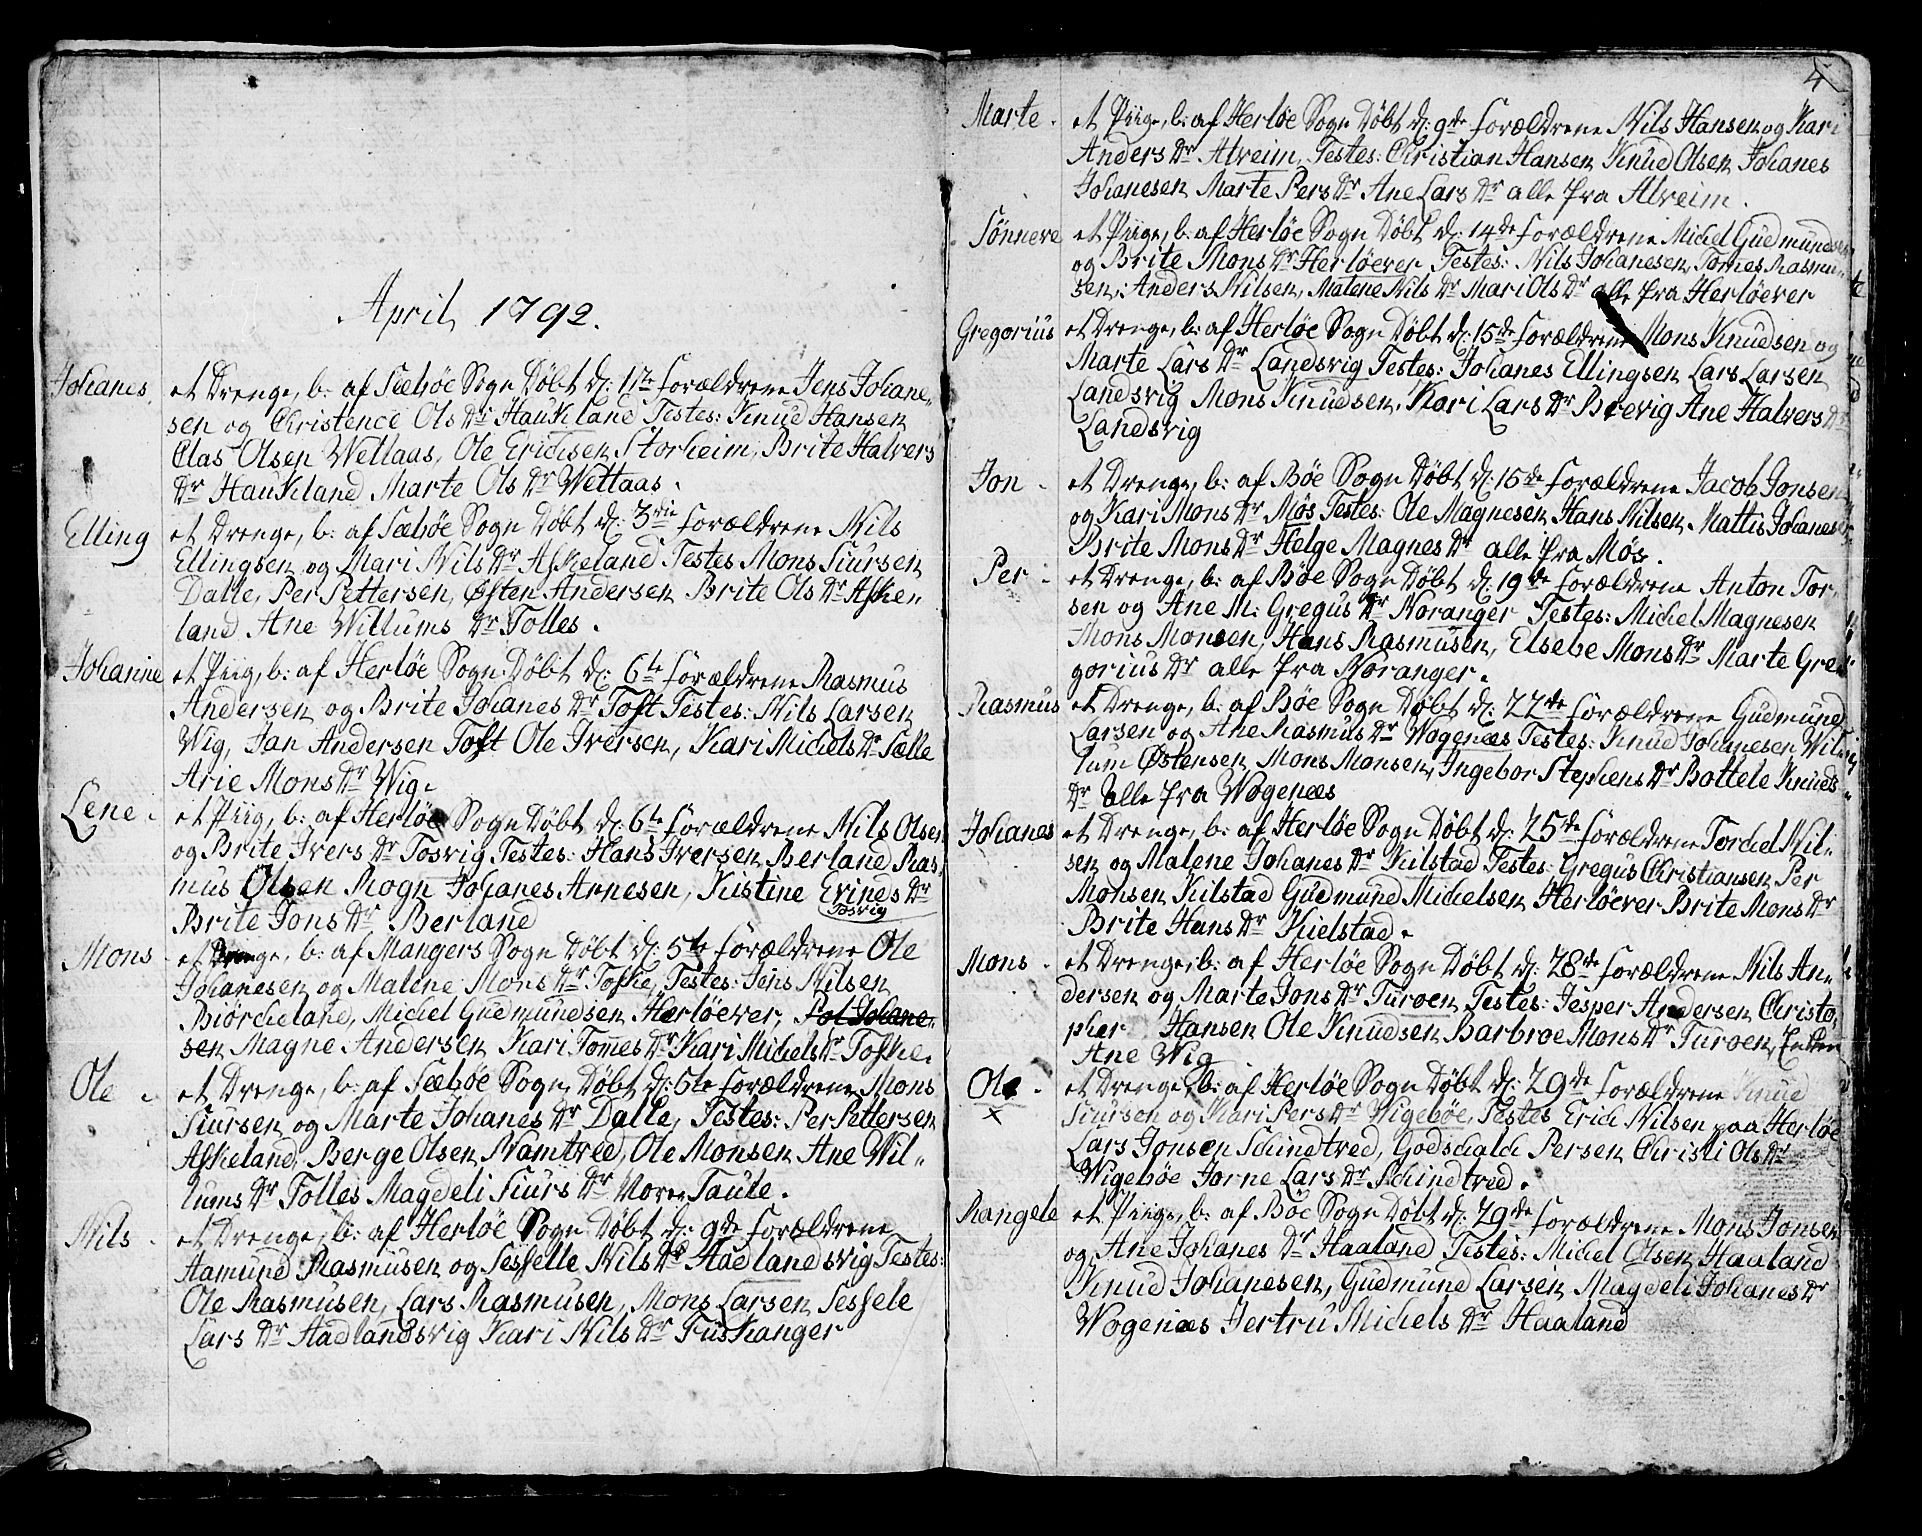 April 1792.
Johanes et Drenge, b: af Sæbøe Sogn Døbt d: 1te forældrene Jens Johane-
sen og Christence Ols Dr Haukland Testes: Knud Hansen
Clas Olsen Wettaas, Ole Erichsen Storheim, Brite Halvers
Dr Haukland Marte Ols Dr Wettaas.
Elling et Drenge, b: af Sæbøe Sogn Døbt d: 3die forældrene Nils
Ellingsen og Mari Nils Dr Askeland Testes Mons Siursen
Dalle, Per Pettersen, Østen Andersen Brite Ols Dr Aske-
land Ane Willums Dr Tolles.
Johanne et Piig, b: af Herløe Sogn Døbt d: 6te forældrene Rasmus
Andersen og Brite Johanes Dr Toft Testes: Nils Larsen
Wig, Jan Andersen Toft Ole Iversen, Kari Michels Dr Sælle
Arie Mons Dr Wig.
Lene. et Piig, b: af Herløe Sogn Døbt d: 6te forældrene Nils Olsen
og Brite Ivers Dr Tosvig Testes: Hans Iversen Berland Ras-
mus Olsen Rogn Johanes Arnesen, Kistine Evines Dr
Tosvig
Brite Jons Dr Berland
Mons et Drenge, b: af Mangers Sogn Døbt d: 5te forældrene Ole
Johanesen og Malene Mons Dr Toske, Testes: Jens Nilsen
Biørcheland, Michel Gudmundsen Herløever, Pol Johane-
sen Magne Andersen Kari Tomes Dr Kari Michels Dr Toske.
Ole. et Drenge, b: af Sæbøe Sogn Døbt d: 5te forældrene Mons
Siursen og Marte Johanes Dr Dalle, Testes: Per Pettersen
Askeland, Berge Olsen Namtred, Ole Monsen Ane Wil-
lums Dr Tolles Magdeli Siurs Dr Taule.
Nils. et Drenge, b: af Herløe Sogn Døbt d: 9de forældrene
Hamund Rasmusen og Sesselle Nils Dr Aadlandsvig Testes:
Ole Rasmusen, Lars Rasmusen, Mons Larsen Sessele
Lars Dr Aadlandsvig Kari Nils Dr Fuskanger
4
Marte. et Piige, b: af Herløe Sogn Døbt d: 9de forældrene Nils Hansen og Kari
Anders Dr Alveim, Testes: Christian Hansen Knud Olsen Johanes
Johanesen Marte Pers Dr Ane Lars Dr alle fra Alveim.
Sønneve et Piige, b: af Herløe Sogn Døbt d: 14de forældrene Michel Gudmundsen
og Brite Mons Dr Herløever Testes: Nils Johanesen, Tomes Rasmu-
sen, Anders Nilsen, Malene Nils Dr Mari Ols Dr alle fra Herløever
Gregorius et Drenge, b: af Herløe Sogn Døbt d: 15de forældrene Mons Knudsen og
Marte Lars Dr Landsvig Testes: Johanes Ellingsen Lars Larsen
Landsvig Mons Knudsen, Kari Lars Dr Brevig Ane Halvers Dr
Landsvig
Jon. et Drenge, b: af Bøe Sogn Døbt d: 15de forældrene Jacob Jonsen
og Kari Mons Dr Møs Testes: Ole Magnesen Hans Nilsen, Mattis Johanes
Brite Mons Dr Helge Magnes Dr alle fra Møs.
Per. et Drenge, b: af Bøe Sogn Døbt d: 19de forældrene Anton Tor-
sen og Ane M: Gregus Dr Noranger Testes: Michel Magnesen
Mons Monsen, Hans Rasmusen, Elsebe Mons Dr Marte Gre-
gorius Dr alle fra Noranger.
Rasmus et Drenge, b: af Bøe Sogn Døbt d: 22de forældrene Gudmund
Larsen og Ane Rasmus Dr Wogenæs Testes: Knud Johanesen Wil-
lum Østensen, Mons Monsen, Ingebor Stephens Dr Bottele Knuds
Dr alle fra Wogenæs
Johanes et Drenge, b: af Herløe Sogn Døbt d: 25de forældrene Torchel Nil-
sen og Malene Johanes Dr Kilstad Testes: Gregus Christiansen Per
Monsen Kilstad Gudmund Michelsen Herløever Brite Mons Dr
Brite Hans Dr Kielstad.
Mons. et Drenge, b: af Herløe Sogn Døbt d: 28de forældrene Nils An-
dersen og Marte Jons Dr Turoen Testes: Jesper Andersen Christo-
pher Hansen Ole Knudsen Barbroe Mons Dr Turoen, Enken
Ane Wig
Ole. et Drenge, b: af Herløe Sogn Døbt d: 29de forældrene Knud
x Siursen og Kari Pers Dr Wigebøe, Testes Erich Nilsen paa Herløe
Lars Jonsen Schindtred, Godschalch Persen Christi Ols Dr
Wigebøe Jorne Lars Dr Schindtred.
Rangele et Piige, b: af Bøe Sogn Døbt d: 29de forældrene Mons Jonsen
og Ane Johanes Dr Haaland Testes: Michel Olsen Haaland
Knud Johanesen, Gudmund Larsen Magdeli Johanes Dr
Wogenæs Jertru Michels Dr Haaland